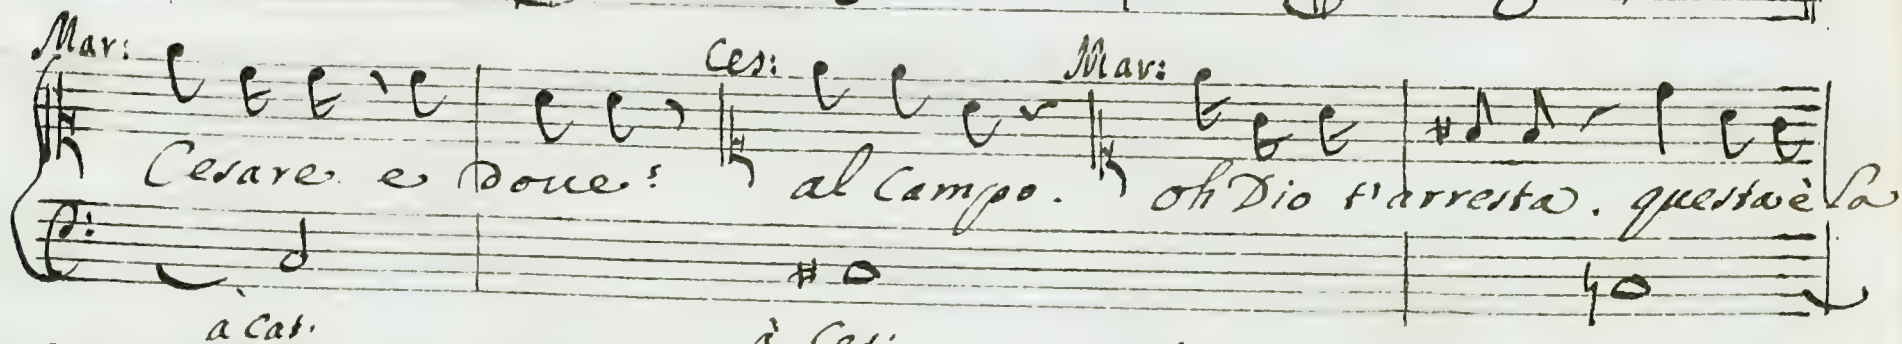 Mar: Ces: Mar:
Cesare e Doue? al Campo. oh Dio t'arresta. questa è la
à Cat. à Ces: